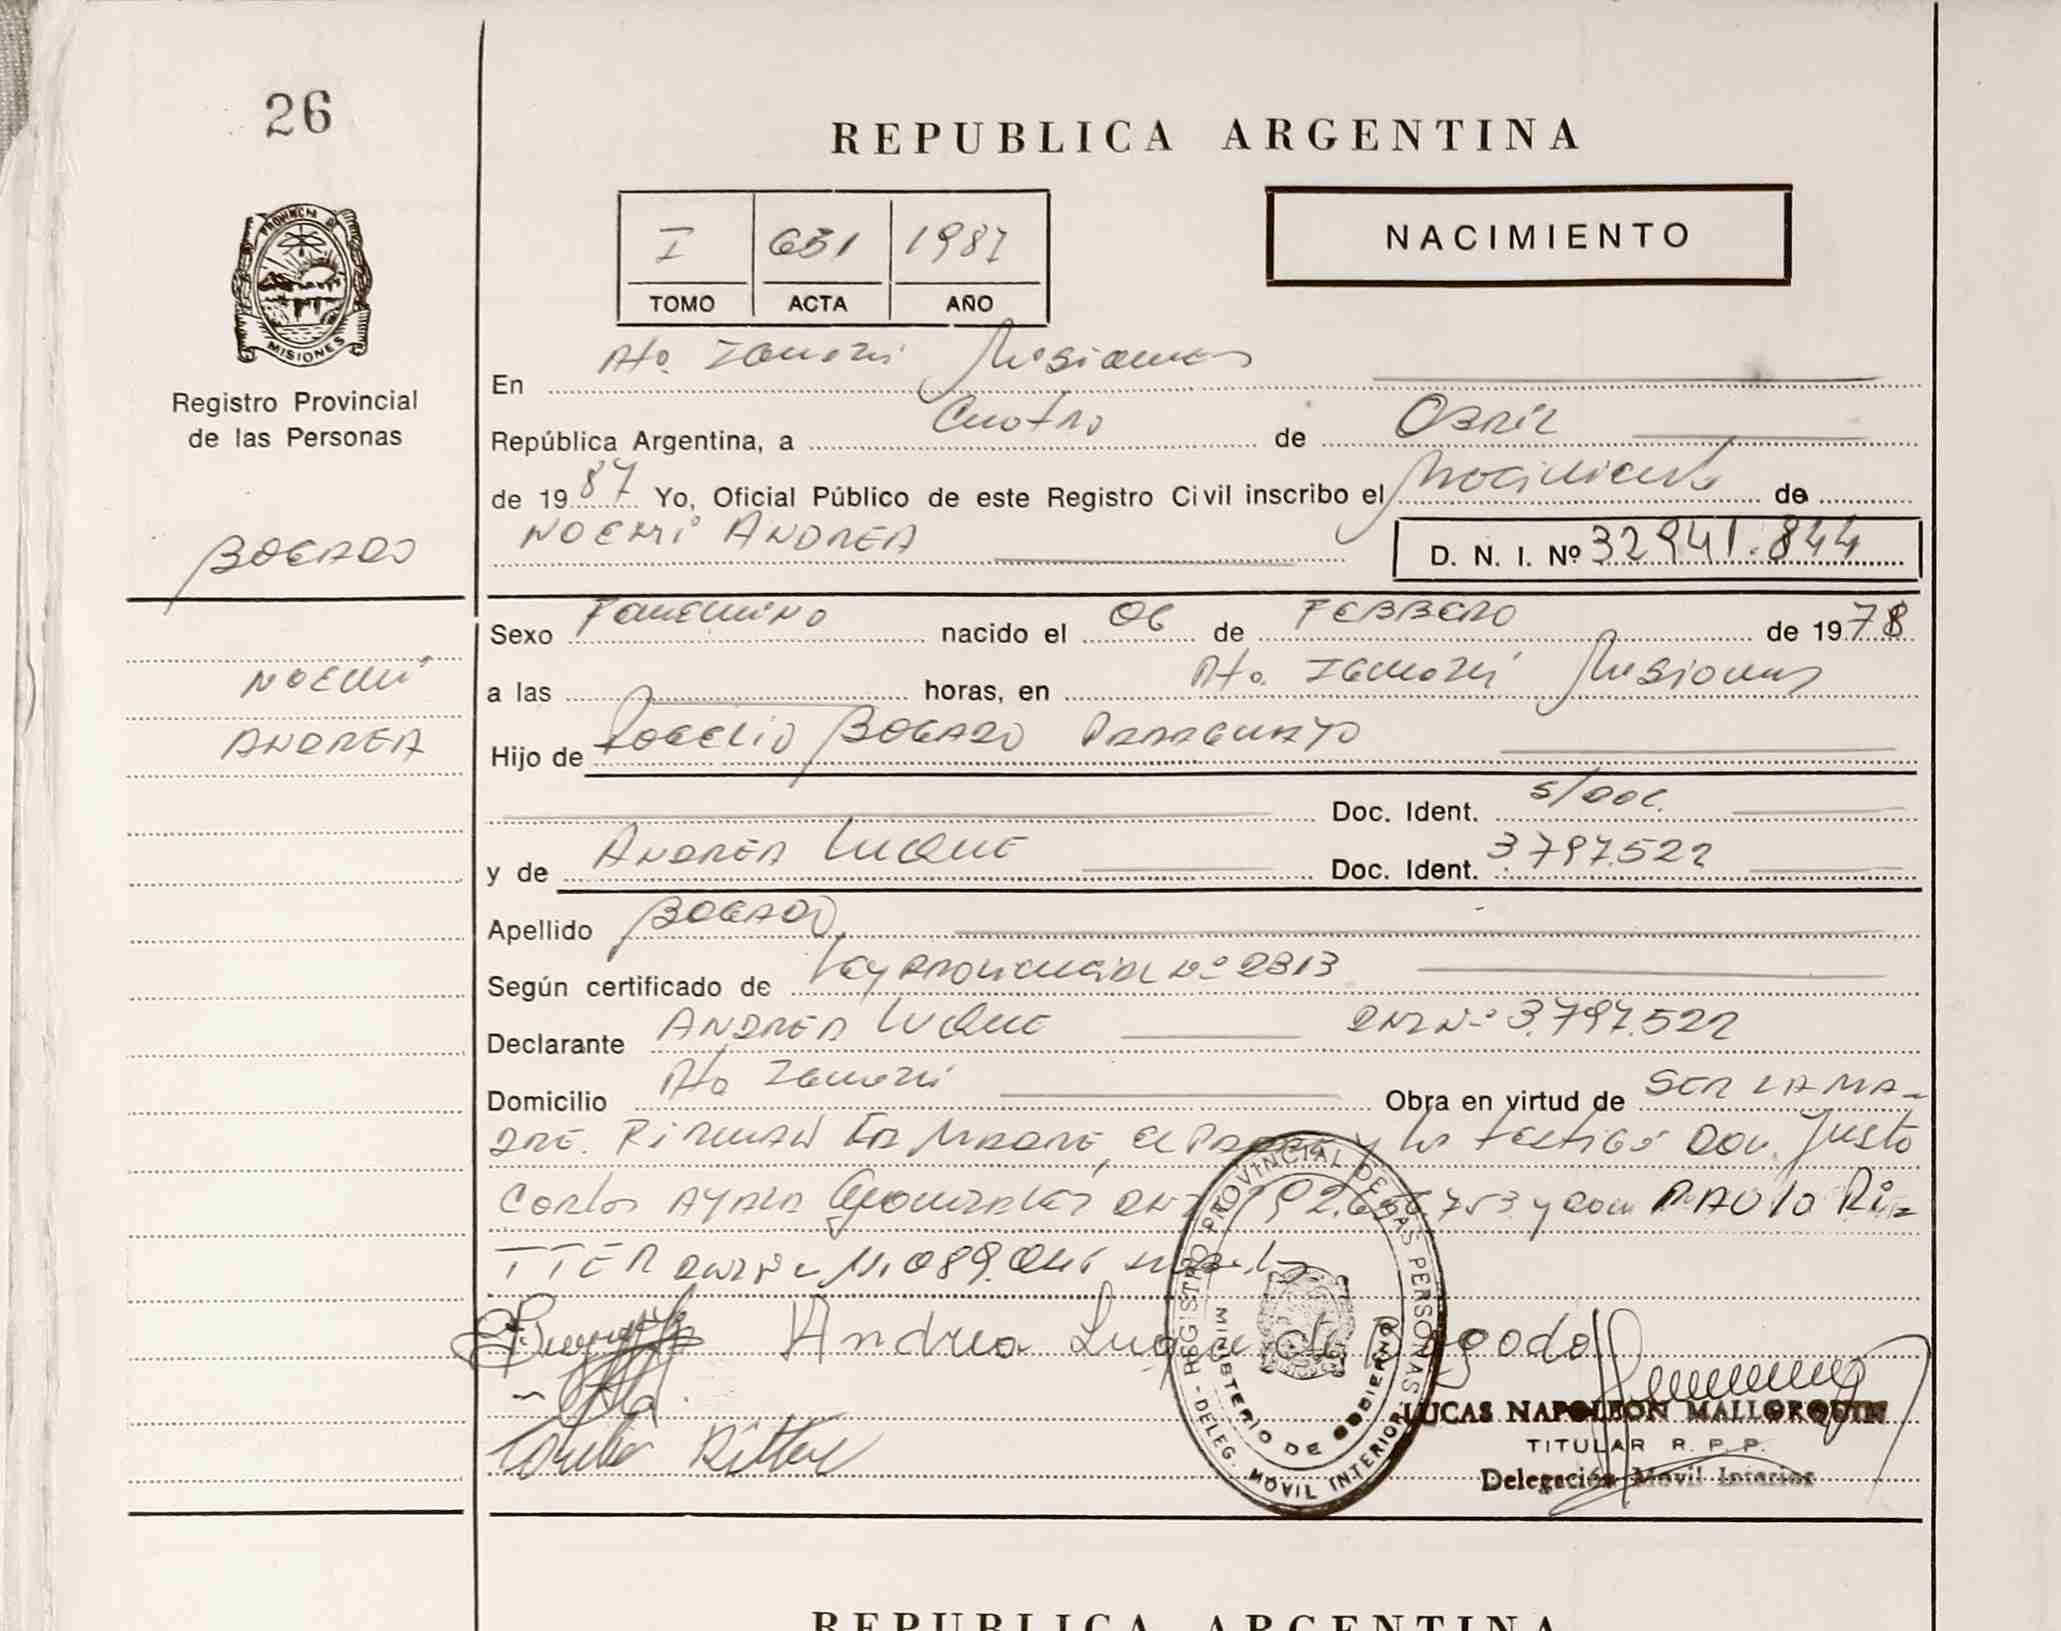 26
REPUBLICA ARGENTINA
PROVINCIA DE
MISIONES
Registro Provincial
de las Personas
I 631 1987
TOMO ACTA AÑO
NACIMIENTO
En Pto. Iguazú Misiones
República Argentina, a Cuatro de Abril
de 1987 Yo, Oficial Público de este Registro Civil inscribo el Nacimiento de
BOGADO
NOEMÍ ANDREA D. N. I. Nº 32941.844
Sexo Femenino nacido el 06 de FEBRERO de 1978
NOEMÍ
a las horas, en Pto. Iguazú Misiones
ANDREA
Hijo de Rogelio BOGADO PARAGUAYO
Doc. Ident. s/doc.
y de ANDREA LUQUE Doc. Ident. 3.797.522
Apellido BOGADO
Según certificado de Ley Provincial Nº 2313
Declarante ANDREA LUQUE DNI Nº 3.797.522
Domicilio Pto Iguazú Obra en virtud de SER LA MA-
DRE. Firman la Madre, el Padre y los testigos Don Justo
Carlos AYALA Gonzalez DNI 92. .753 y con PAULO Ri=
TTER DNI Nº 11.089.046
Andrea Luque de Bogado
Ritter
REGISTRO PROVINCIAL DE LAS PERSONAS
- DELEG. MOVIL INTERIOR
MINISTERIO DE GOBIERNO
LUCAS NAPOLEON MALLORQUIN
TITULAR R. P. P.
Delegación Movil Interior
REPUBLICA ARGENTINA